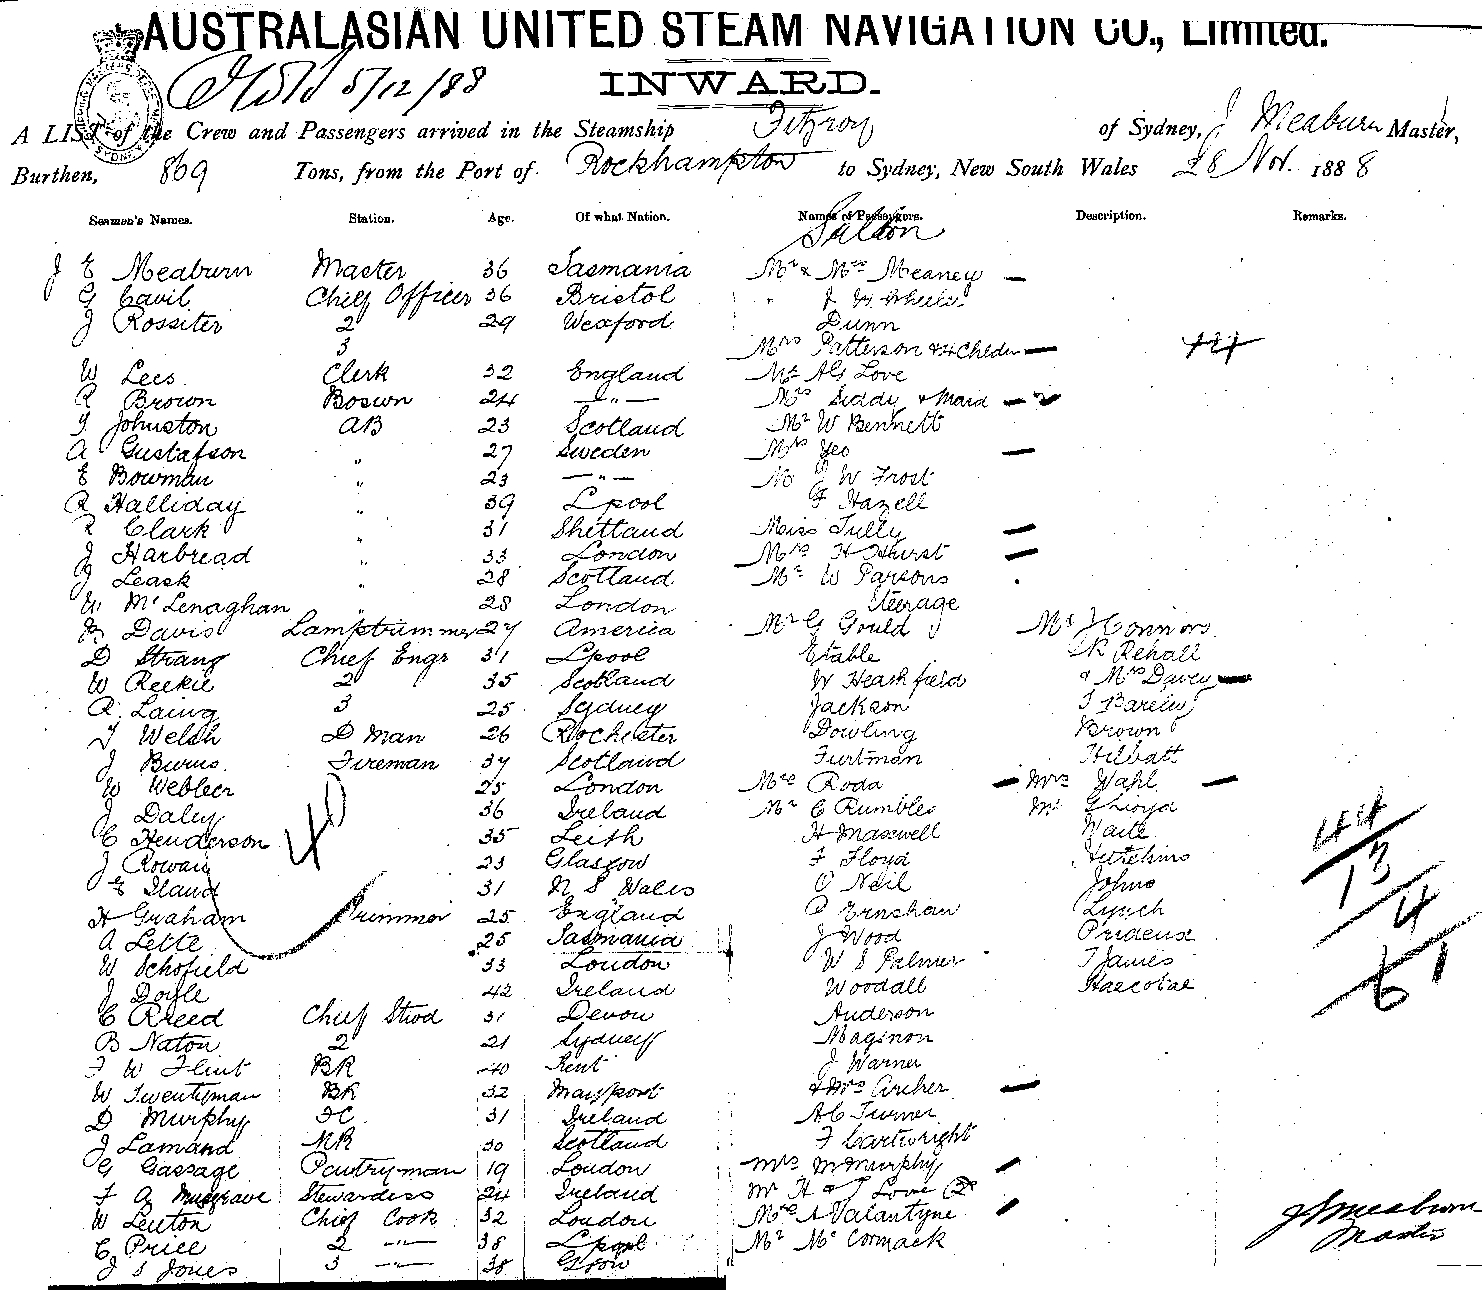 AUSTRALASIAN UNITED STEAM NAVIGATION CO., Limited.
5/12/88
INWARD.
A LIST of the Crew and Passengers arrived in the Steamship Fitzroy of Sydney, J Meaburn Master,
Burthen, 869 Tons, from the Port of Rockhampton to Sydney, New South Wales 28 Nov. 1888
Seamen's Names. Station. Age. Of what Nation. Names of Passengers. Description. Remarks.
Saloon
J E Meaburn Master 36 Tasmania Mr & Mrs Meaney —
G Cavil Chief Officer 36 Bristol " J H Wheeler
J Rossiter 2 29 Wexford Dunn
3 Mrs Patterson & 4 Childn —
W Lees Clerk 32 England Mr AG Love
R Brown Boswn 24 — " — Mrs Siddy & Maid — 2
T Johnston AB 23 Scotland Mr W Bennett
A Gustafson " 27 Sweden Mrs Yeo —
E Bowman " 23 — " — M J W Frost
R Halliday " 39 Lpool F Hazell
R Clark " 31 Shetland Miss Tully —
J Harbread " 33 London Mrs H Hurst —
J Leask " 28 Scotland Mr W Parsons
W McLenaghan " 28 London Steerage
Davis Lamptrimmer 27 America Mr G Gould Mr J Connors
D Strang Chief Engr 31 Lpool Etable R Rehall
W Reekie 2 35 Scotland W Heashfield & Mrs Davey —
R Laing 3 25 Sydney Jackson
T Welsh D Man 26 Rochester Dowling Brown
J Burns Fireman 37 Scotland Furtman Hilbatt
W Webber 25 London Mrs Roda — Mrs Wahl —
J Daley 36 Ireland Mr C Rumbles Mr G Lloyd
C Henderson 40 35 Leith H Maxwell Waite 44
J Rowan 23 Glasgow F Floyd Hutchins 13
E Iland 31 N S Wales O Neil Johns 4
H Graham Trimmer 25 England Ernshaw Lynch
A Lette 25 Tasmania J Wood Prideux
W Schofield 33 London W S Palmer T James 61
J Doyle 42 Ireland Woodall
C Reed Chief Stwd 31 Devon Anderson
B Naton 2 21 Sydney Maginon
F W Flint BR 40 Kent J Warner
W Twentyman BR 32 Maryport & Mrs Archer —
D Murphy FC 31 Ireland AC Turner
J Lamand MR 30 Scotland F Cartwright
G Gassage Pantryman 19 London Mrs McMurphy —
F A Musgrave Stewardess 24 Ireland Mr H & J Love (2)
W Lenton Chief Cook 32 London Mrs A Valantyne —
C Price 2 — " — 38 Lpool Mr McCormack
J S Jones 3 — " — 38 Gsow
J E Meaburn
Master